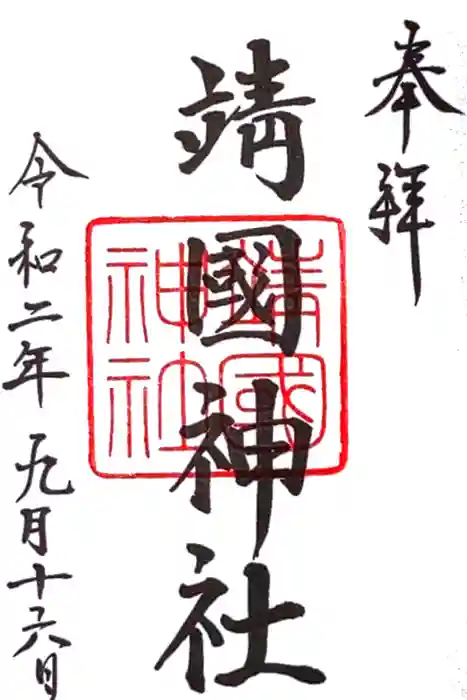 奉拝
靖國神社
靖国
神社
令和二年九月十六日